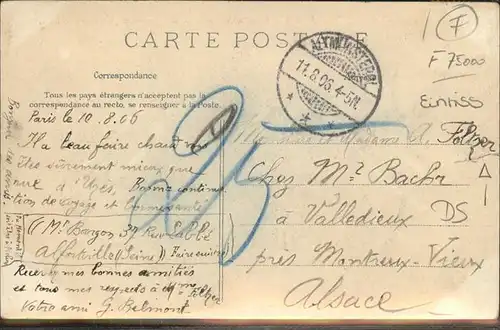 CARTE POSTALE
F
F 75000
Einriss
Correspondance
Tous les pays étrangers n'acceptent pas la
correspondance au recto, se renseigner à la Poste.
11.8.06. 4-5N.
25
Paris le 10.8.06
Il a beau faire chaud
sûrement mieux que
rue d'Uzès, bonne continua
tion de voyage et
(( Mr 37 Rue
Alfortville (Seine) Faire suivre
Recevez mes bonnes amitiés
et tous mes respects à Mme Foltzer
Votre ami G. Belmont
Monsieur & Madame A. Foltzer
Chez Mr Bachr
à Valledieux
DS
près Montreux-Vieux
Alsace